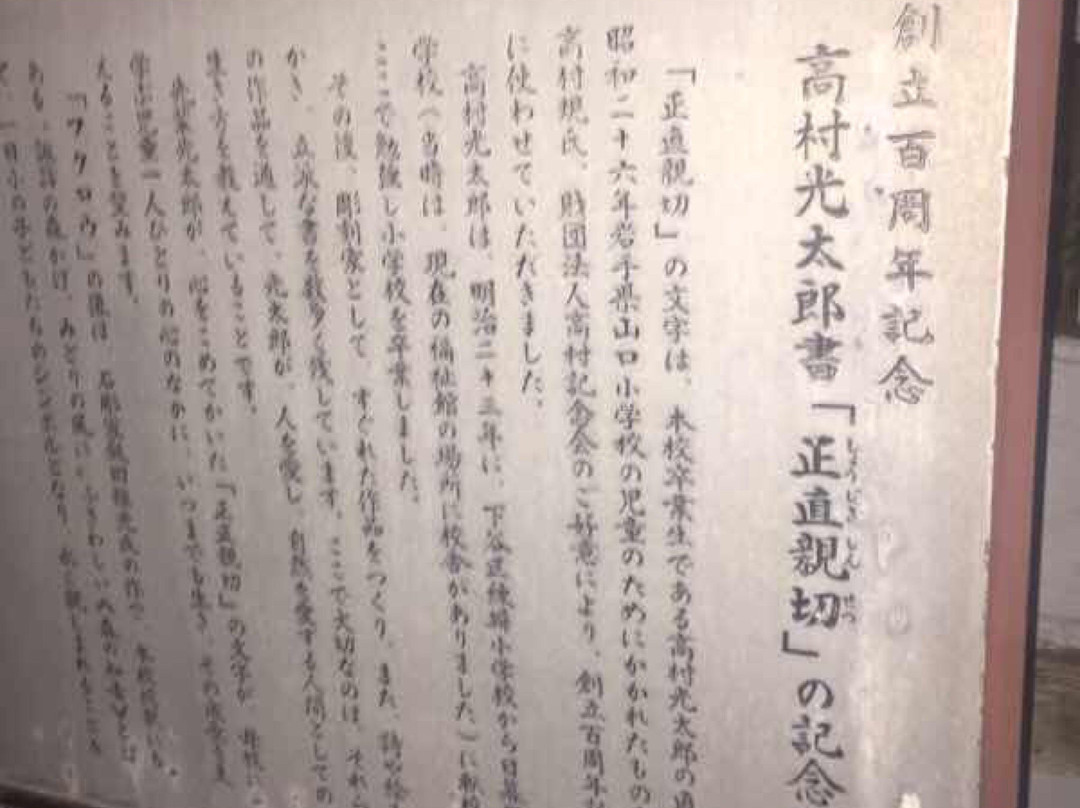 創立百周年記念
高村光太郎書「正直親切」の記念
しょうじきしんせつ
「正直親切」の文字は、本校卒業生である高村光太郎の直
昭和二十六年岩手県山口小学校の児童のためにかかれたもの
高村規氏、財団法人高村記念会のご好意により、創立百周年記
に使わせていただきました。
高村光太郎は、明治二十三年に、下谷区練塀小学校から日暮
学校(当時は、現在の修徒館の場所に校舎がありました)に転校
ここで勉強し小学校を卒業しました。
その後、彫刻家として、すぐれた作品をつくり、また、詩や
かき、立派な書を数多く残しています。ここで大切なのは、それら
の作品を通して、光太郎が、人を愛し、自然を愛する人間としての
生き方を教えていることです。
先輩光太郎が、心をこめてかいた「正直親切」の文字が、
学ぶ児童一人ひとりの心のなかに、いつまでも生き、その
えることを望みます。
「フクロウ」の像は、石彫家
ある、諏訪の森かげ、みどりの風い、ふさわしい
子どもたちのシンボルとなり、